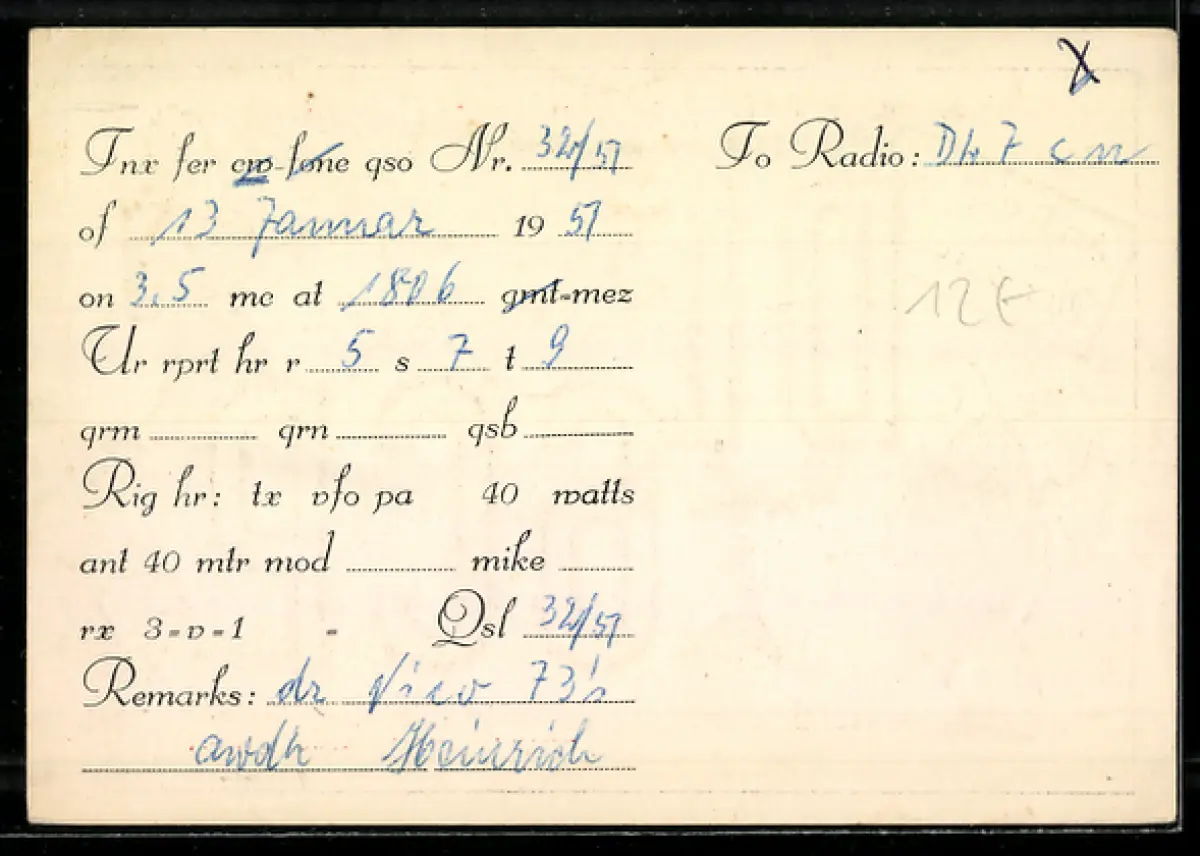 Tnx fer cw-fone qso Nr. 32/51
of 13 Januar 19 51
on 3,5 mc at 1806 gmt-mez
Ur rprt hr r 5 s 7 t 9
qrm qrn qsb
Rig hr: tx vfo pa 40 watts
ant 40 mtr mod mike
rx 3-v-1 - Qsl 32/51
Remarks: dr Nico 73's
awdh Heinrich
X
To Radio: DL 7 cn
12€